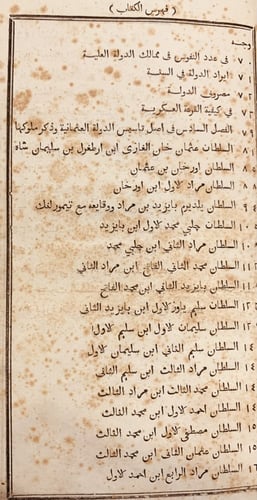 ( فهرس الكتاب )
وجه
٧ فى عدد النفوس فى ممالك الدولة العلية
٧ ايراد الدولة فى السنة
٧ مصروف الدولة
٧ فى كيفية القرعة العسكرية
٧٩ الفصل السادس فى اصل تاسيس الدولة العثمانية وذكر ملوكها
٨ السلطان عثمان خان الغازى ابن ارطغرل بن سليمان شاه
٨ السلطان اورخان بن عثمان
٨ السلطان مراد الاول ابن اورخان
٩ السلطان يلديرم بايزيد بن مراد ووقايعه مع تيمورلنك
١٠ السلطان چلبي محمد الاول ابن بايزيد
١٠ السلطان مراد الثاني ابن چلبي محمد
١١ السلطان محمد الثاني الفاتح ابن مراد الثاني
١١ السلطان بايزيد الثاني ابن محمد الفاتح
١٢ السلطان سليم ياوز الاول ابن بايزيد الثاني
١٢ السلطان سليمان الاول ابن سليم الاول
١٤ السلطان سليم الثاني ابن سليمان الاول
١٤ السلطان مراد الثالث ابن سليم الثاني
١٤ السلطان محمد الثالث ابن مراد الثالث
١٤ السلطان احمد الاول ابن محمد الثالث
١٥ السلطان مصطفى الاول ابن محمد الثالث
١٥ السلطان عثمان الثاني ابن محمد الثالث
١٦ السلطان مراد الرابع ابن احمد الاول